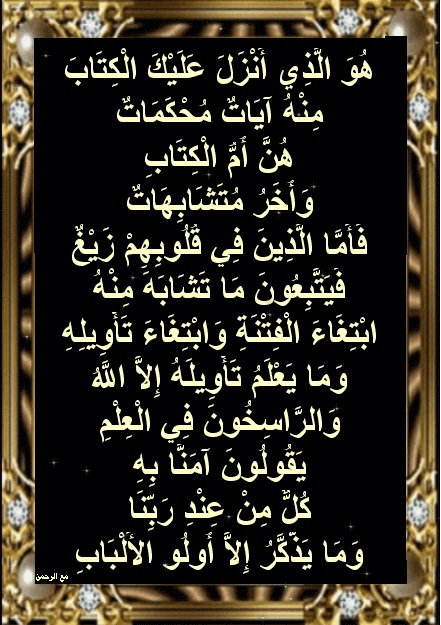 هُوَ الَّذِي أَنْزَلَ عَلَيْكَ الْكِتَابَ
مِنْهُ آيَاتٌ مُحْكَمَاتٌ
هُنَّ أُمُّ الْكِتَابِ
وَأُخَرُ مُتَشَابِهَاتٌ
فَأَمَّا الَّذِينَ فِي قُلُوبِهِمْ زَيْغٌ
فَيَتَّبِعُونَ مَا تَشَابَهَ مِنْهُ
ابْتِغَاءَ الْفِتْنَةِ وَابْتِغَاءَ تَأْوِيلِهِ
وَمَا يَعْلَمُ تَأْوِيلَهُ إِلاَّ اللَّهُ
وَالرَّاسِخُونَ فِي الْعِلْمِ
يَقُولُونَ آمَنَّا بِهِ
كُلٌّ مِنْ عِنْدِ رَبِّنَا
وَمَا يَذَّكَّرُ إِلاَّ أُولُو الأَلْبَابِ
مع الرحمن